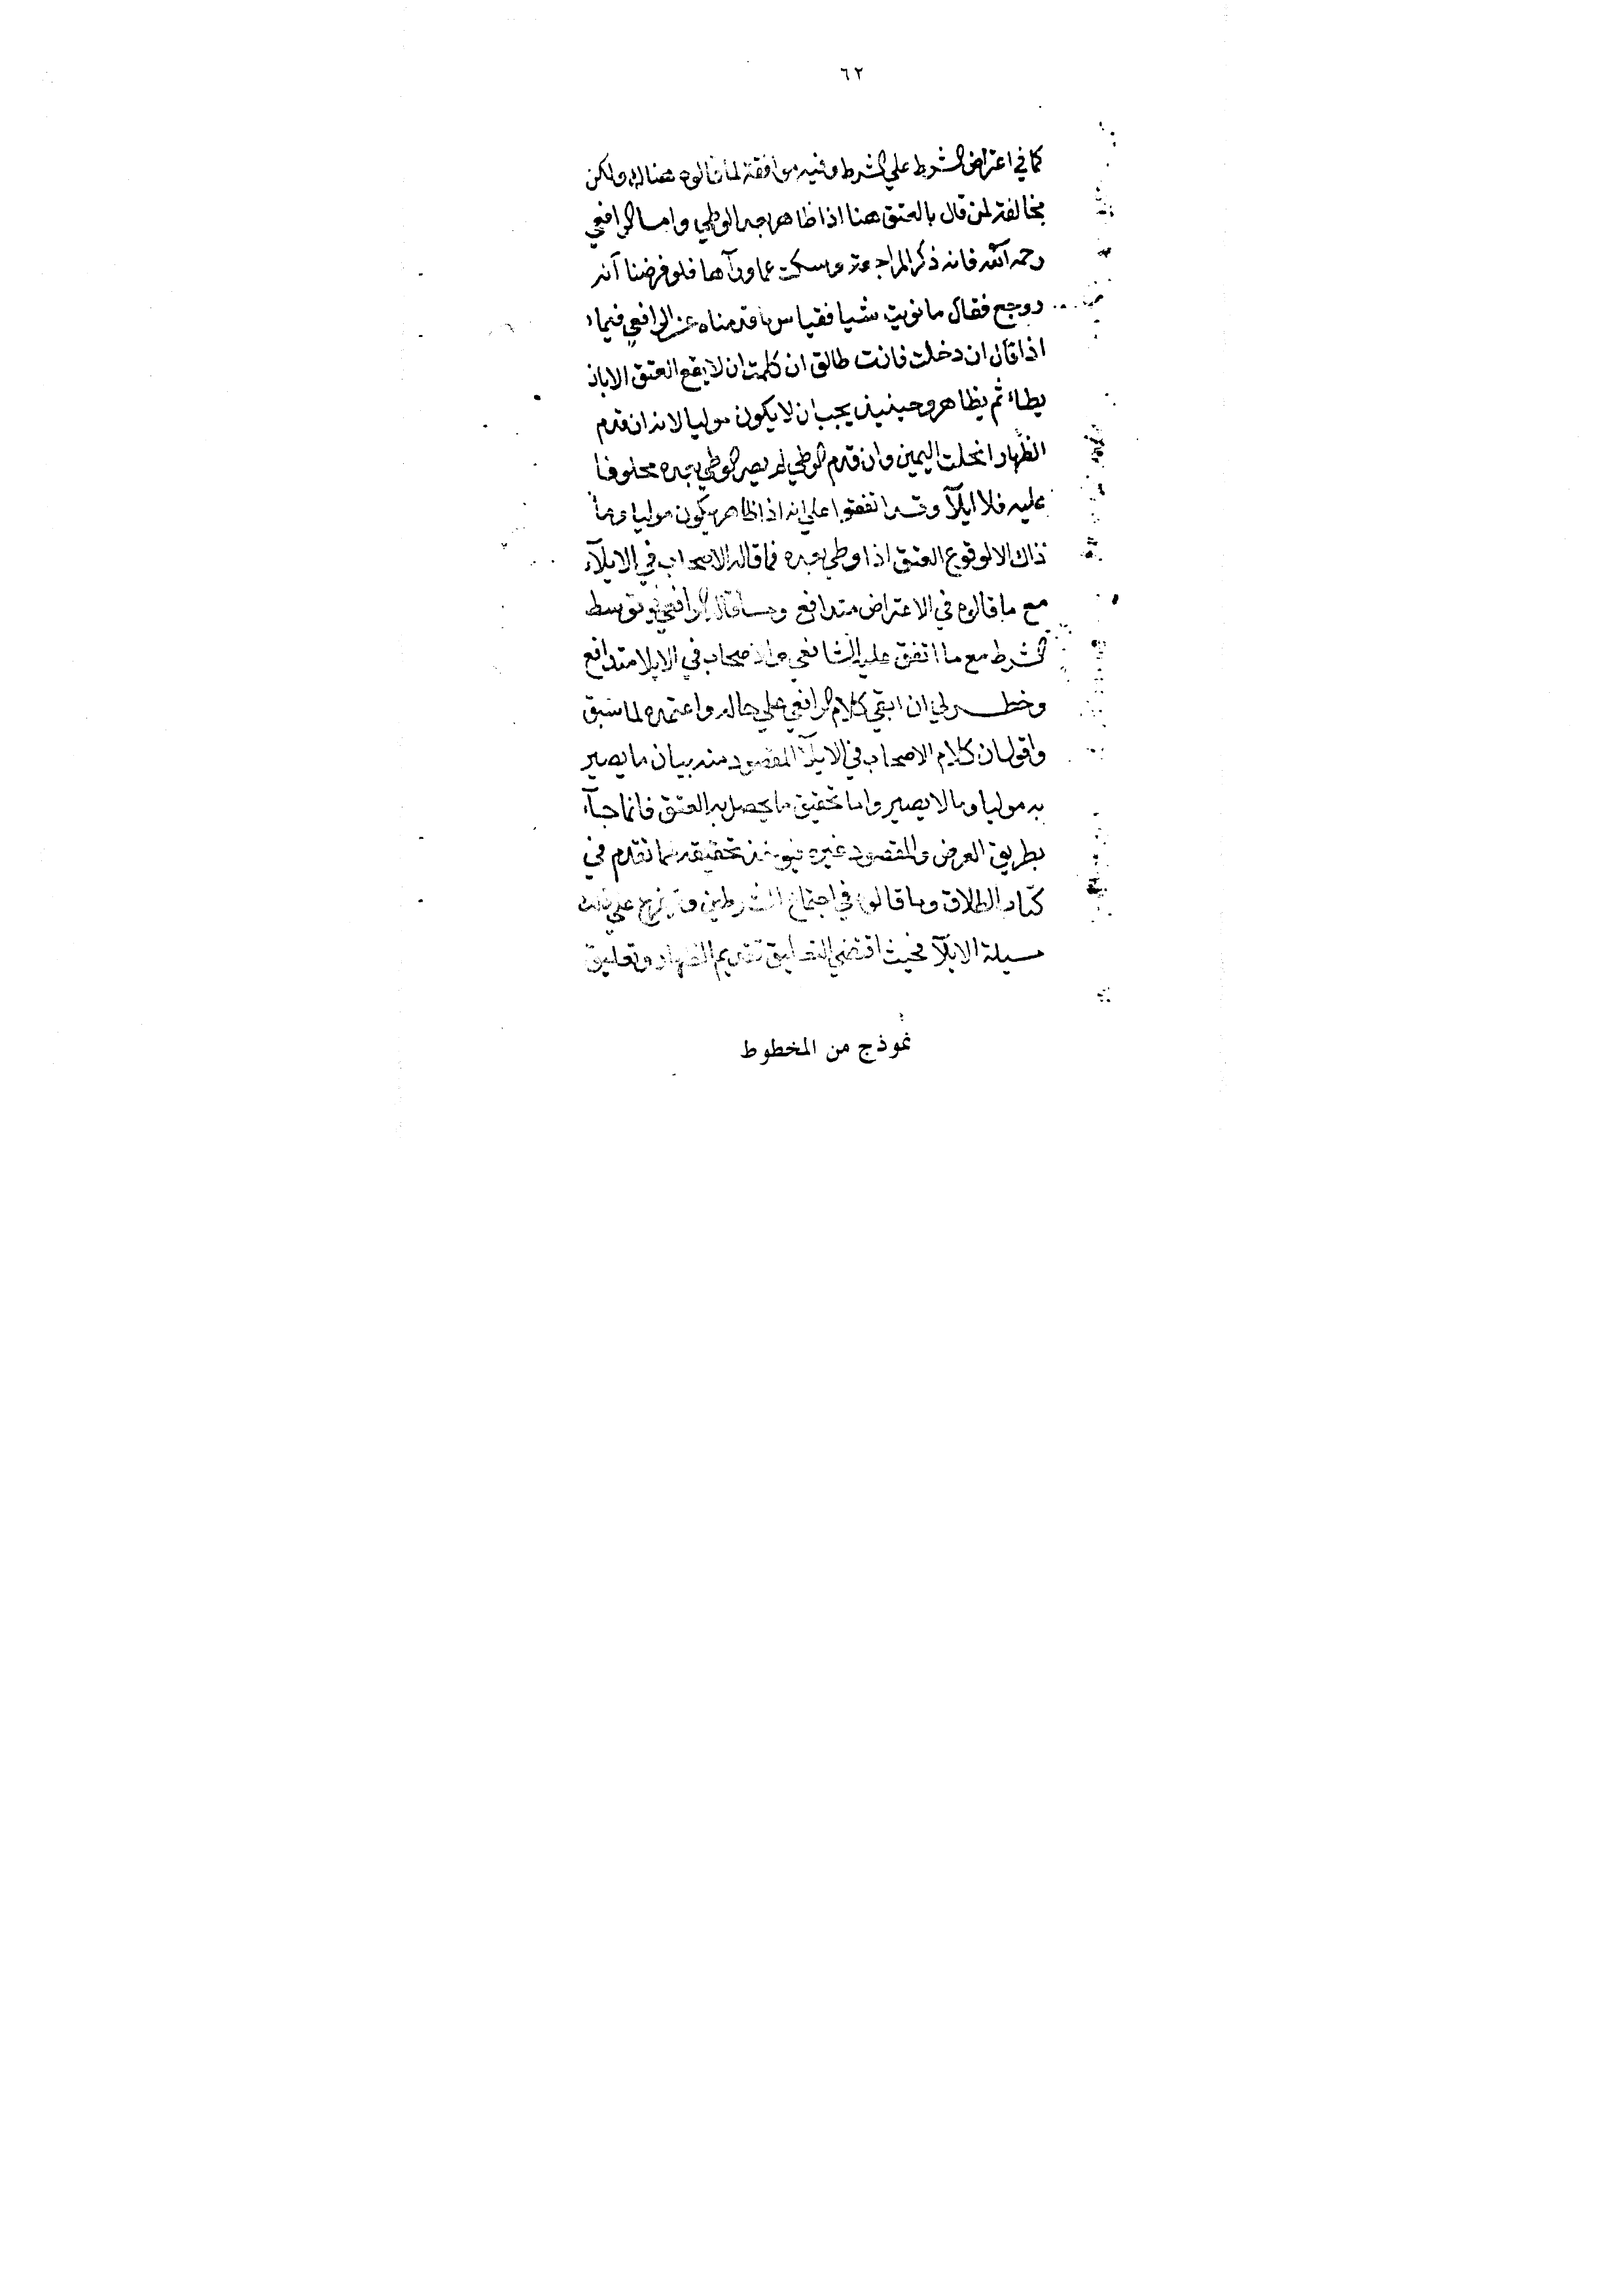 ٦٢
كما في اعتراض الشرط علي الشرط وفيه موافقة لما قالوه هناك ولكن
مخالفة لمن قال بالعتق هنا اذا ظاهر بعد الوطي واما الرافعي
رحمه الله فانه ذكر المراجعة وسكت عما ورآها فلو فرضنا انه
روجع فقال ما نويت شيا فقياس ما قدمناه عن الرافعي فيما
اذا قال ان دخلت فانت طالق ان كلمت ان لا يقع العتق الا بان
يطاء ثم يظاهر وحينيذ يجب ان لا يكون موليا لانه ان قدم
الظهار انحلت اليمين وان قدم الوطي لم يصر الوطي بعده محلوفا
عليه فلا ايلآ وقد اتفقوا علي انه اذا ظاهر يكون موليا وما
ذاك الا لوقوع العتق اذا وطي بعده فما قاله الاصحاب في الايلآء
مع ما قالوه في الاعتراض متدافع وما قاله الرافعي في توسط
الشرط مع ما اتفق عليه الشافعي والاصحاب في الايلا متدافع
وخطر لي ان ابقي كلام الرافعي علي حاله واعتمده لما سبق
واقول ان كلام الاصحاب في الايلآ المقصود منه بيان ما يصير
به موليا وما لا يصير واما تحقيق ما يحصل به العتق فانما جآء
بطريق العرض والمقصود غيره فيوخذ تحقيقه مما تقدم في
كتاب الطلاق وما قالوه في اجتماع الشرطين علي ذلك
مسيلة الايلآ فحيث اقتضي التعليق تقديم الظهار وتعليق
نموذج من المخطوط